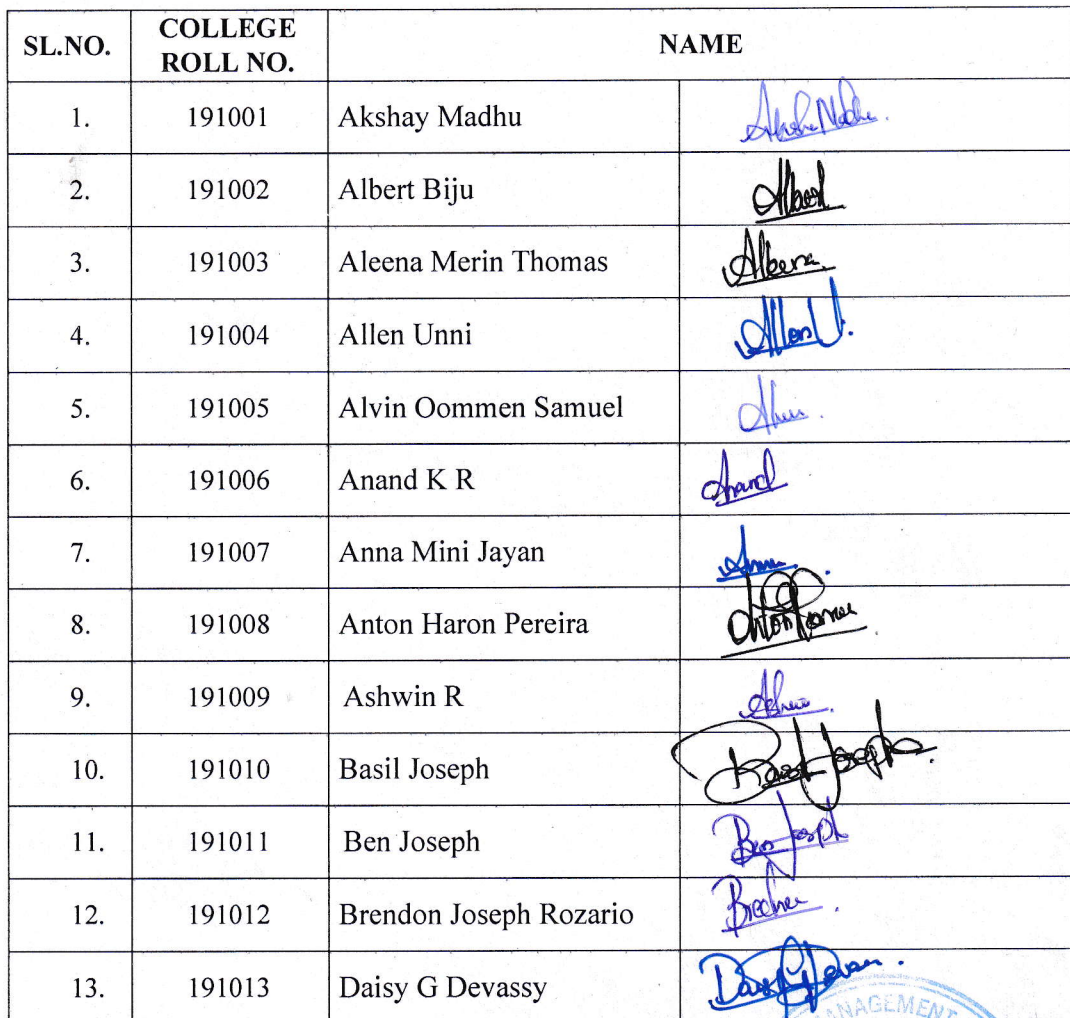 SL.NO. COLLEGE ROLL NO. NAME
1. 191001 Akshay Madhu
2. 191002 Albert Biju Albert
3. 191003 Aleena Merin Thomas
4. 191004 Allen Unni Allen U.
5. 191005 Alvin Oommen Samuel
6. 191006 Anand K R Anand
7. 191007 Anna Mini Jayan
8. 191008 Anton Haron Pereira
9. 191009 Ashwin R
10. 191010 Basil Joseph Basil Joseph
11. 191011 Ben Joseph Ben Joseph
12. 191012 Brendon Joseph Rozario
13. 191013 Daisy G Devassy
MANAGEMENT